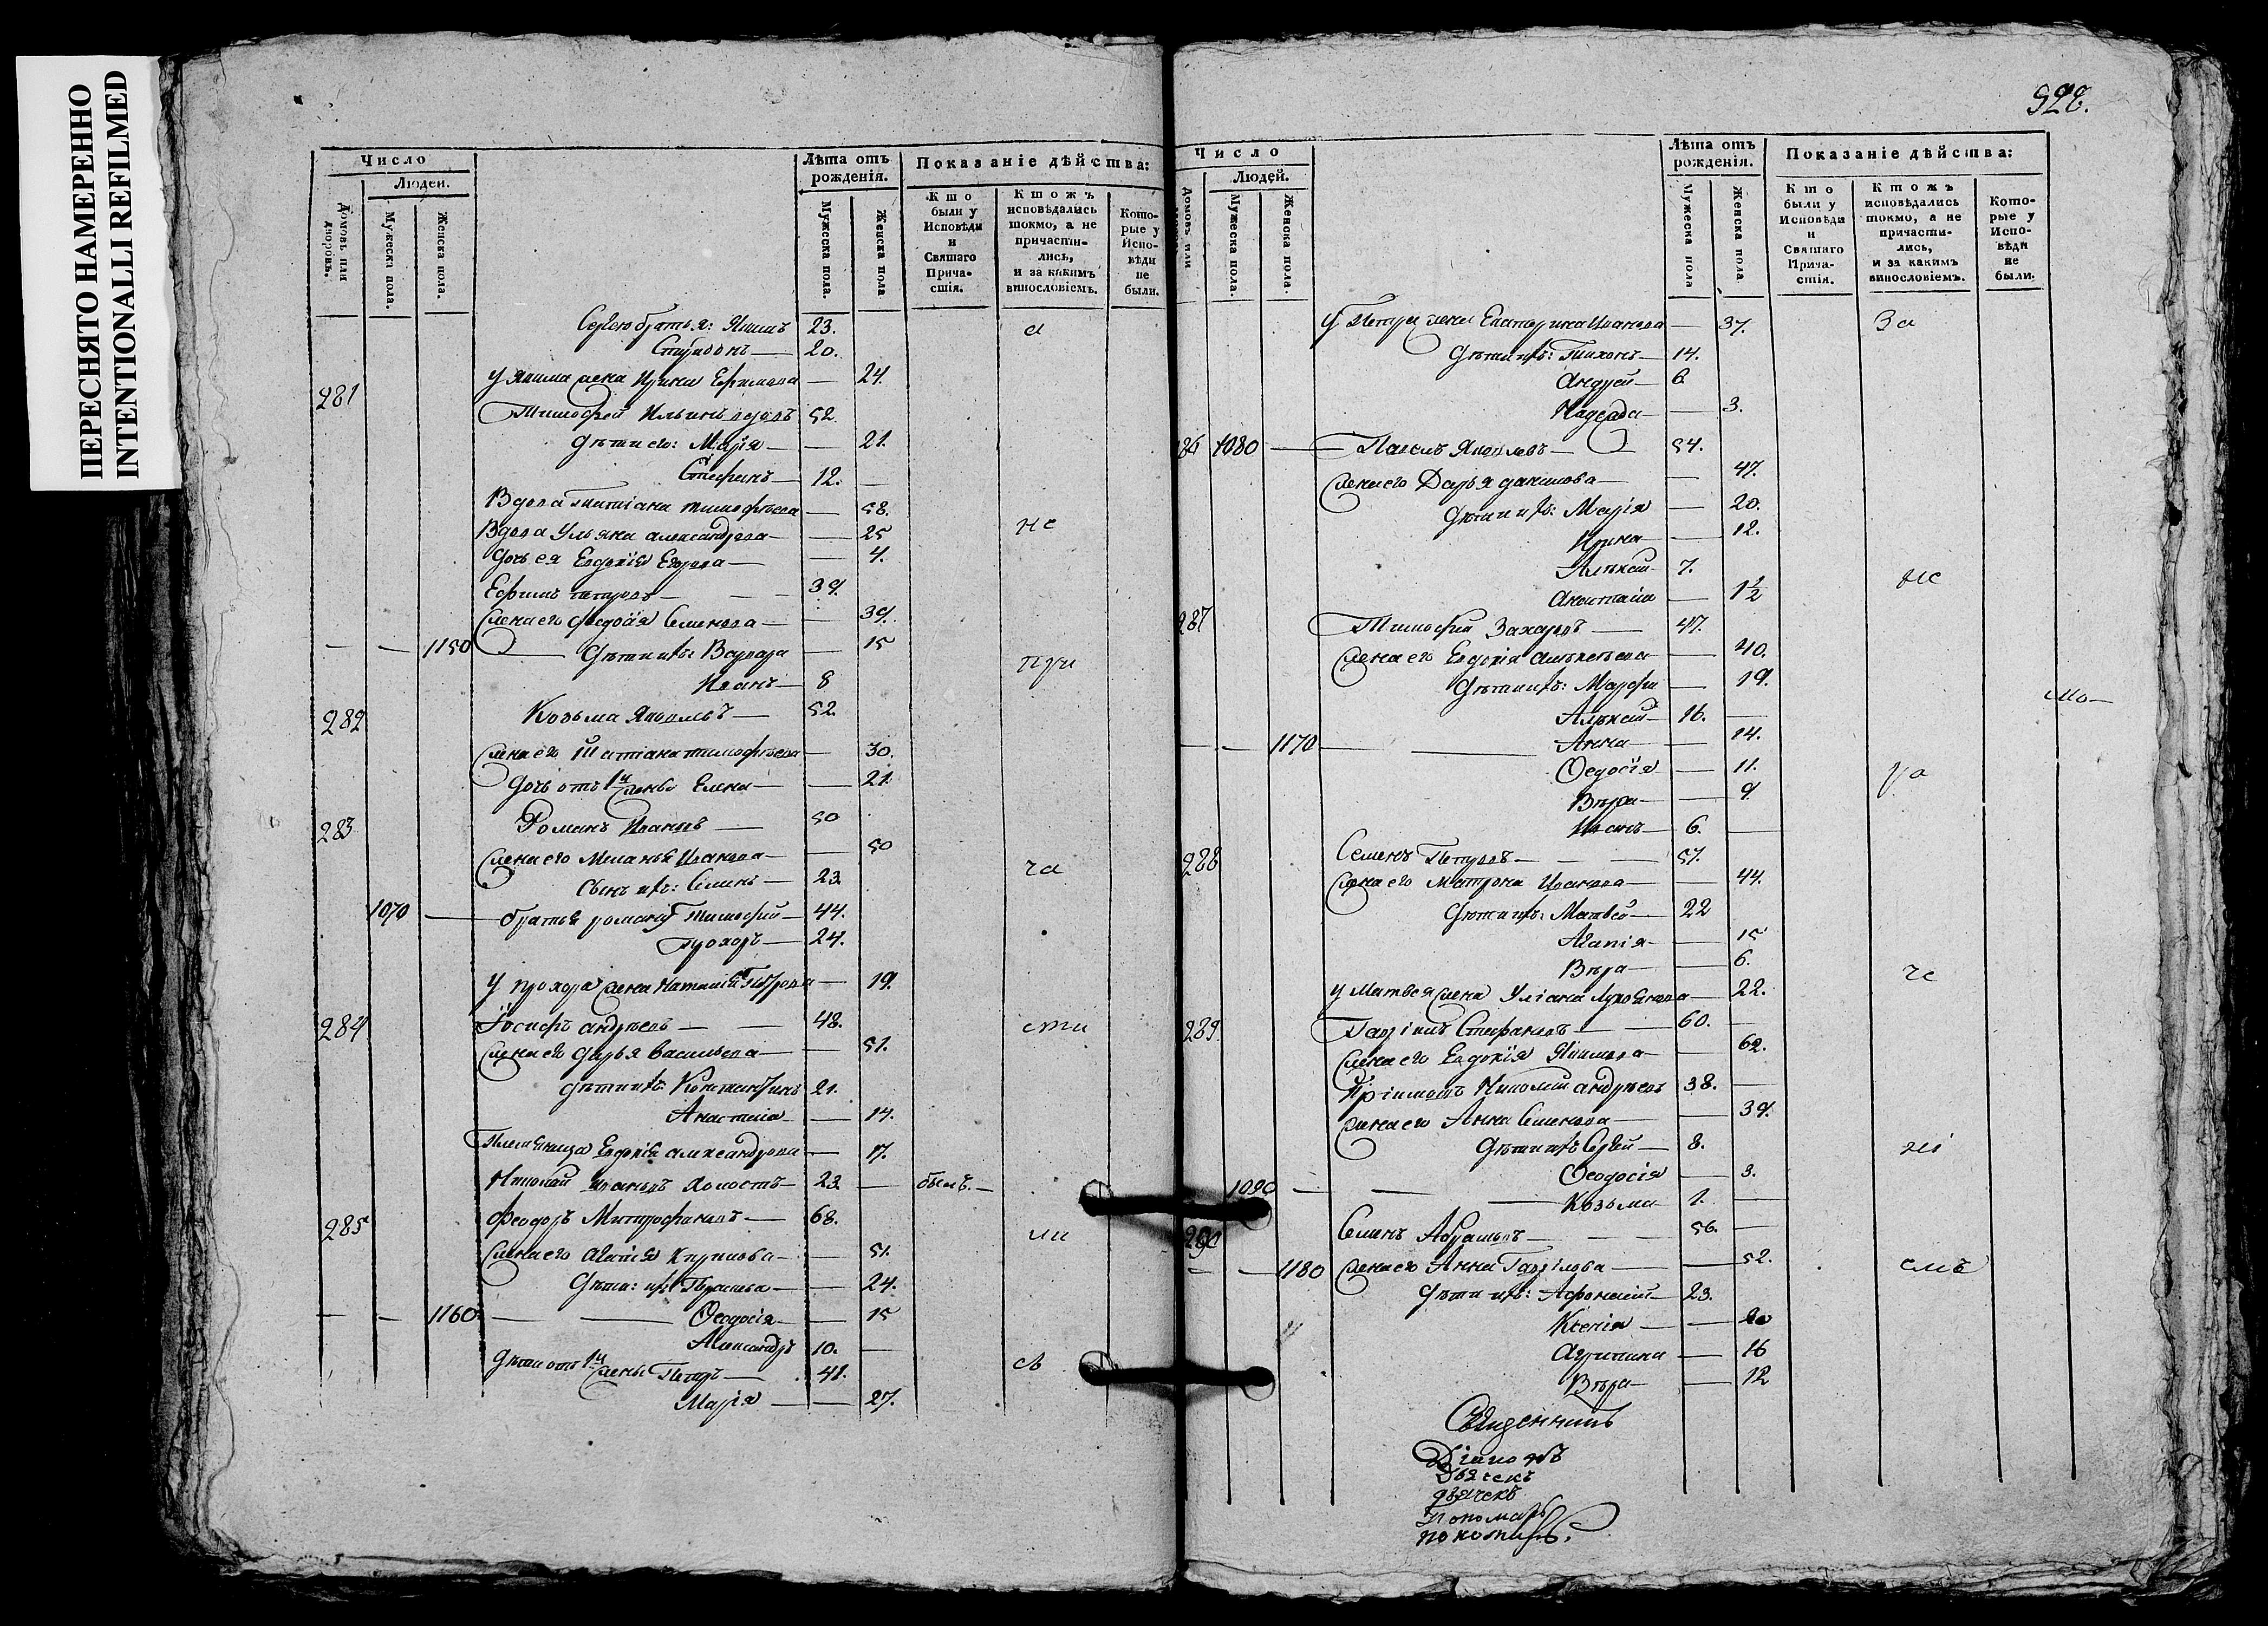 ПЕРЕСНЯТО НАМЕРЕННО
INTENTIONALLI REFILMED
Число
Людей.
Домовъ или дворовъ.
Мужеска пола.
Женска пола.
Лѣта отъ рожденія.
Мужеска пола.
Женска пола
Показаніе дѣйства:
Кто были у Исповѣди и Святаго Причастія.
Ктожъ исповѣдались токмо, а не причастились, и за какимъ винословіемъ.
Которые у Исповѣди не были.
братья: Якимъ 23. а
20.
у Якима жена Ирина Ефимова — 24.
281 Тимофей Ильинъ вдовъ 52.
дѣти его: Марія — 21.
Стефанъ — 12. —
Вдова Татіана тимофѣева — 58.
Вдова Ульяна александрова — 25 не
дочь ея Евдокія Егорова — 4.
Ефимъ петровъ — 39.
жена его федосія Семенова — 39.
— — 1150 дѣти ихъ: Варвара — 15
Иванъ — 8 при
282 Козьма Яковлевъ — 52.
жена его Татіана тимофѣева — 30.
дочь отъ 1й жены Елена — 21.
283 Романъ Ивановъ — 50
жена его Меланья Иванова — 50
сынъ ихъ: Семенъ — 23. ча
1070 — братья романа Тимофей — 44.
прохоръ — 24.
у прохора жена Наталия Петрова — 19.
284 Іосифъ андреевъ — — 48. сти
жена его дарья васильева — 51.
дѣти ихъ Константинъ 21.
Анастасіа — 14.
Племянница Евдокія александрова — 17.
Николай Ивановъ холостъ — 23 — былъ. —
285 феодоръ Митрофановъ — 68. ли
жена его Агапія Кирилова — 51.
дѣти: ихъ Парасковья — 24.
— — 1160 — Ѳеодосія — 15
Александръ 10. —
дѣти отъ 1й жены Петръ — 41. сь
Марія — — 27.
522.
Число
Людей.
Домовъ или
Мужеска пола.
Женска пола.
Лѣта отъ рожденія.
Мужеска пола
Женска пола
Показаніе дѣйства:
Кто были у Исповѣди и Святаго Причастія.
Ктожъ исповѣдались токмо, а не причастились, и за каким винословіемъ.
Которые у Исповѣди не были.
у Петра жена Екатерина Иванова — 37. За
дѣти ихъ: Тихонъ — 14.
Андрей — 6.
Надежда — 3.
286 1080 — Павелъ Яковлевъ — 54.
жена его Дарья данилова — — 47.
дѣти ихъ: Марія — 20.
Ирина — 12.
Алексѣй 7. не
Анастасіа — 1½
287 Тимофей Захаровъ — 47.
жена его Евдокія алексѣева — 40.
дѣти ихъ: Марфа — 19.
Алексѣй — 16. — мо —
— — 1170 — Анна — 14.
Ѳедосія — 11.
Вѣра — 9.
Иванъ — 6. —
288 Семенъ Петровъ — — — 57.
жена его Матрона Иванова — 44.
дѣти ихъ: Матвей — 22
Агапія — 15
Вѣра — 6.
у Матвея жена Уліана — 22. че
289. Гавріилъ Стефановъ — — 60. —
жена его Евдокія Якимова — 62.
Пріимышъ Николай андреевъ 38. —
жена его Анна Семенова — — 39.
дѣти ихъ Сергей — 8. ні
Ѳеодосія — 3.
1090 — — — Козьма 1. —
290 Семенъ Абрамовъ — — — 56. —
— — 1180 жена его Анна Гаврілова — — 52. емъ
дѣти ихъ: Афонасий — 23.
Ксенія — — 20
Агрипина — 16
Вѣра — — 12
Священникъ
Діаконъ
Дьячекъ
дьячекъ
пономарь